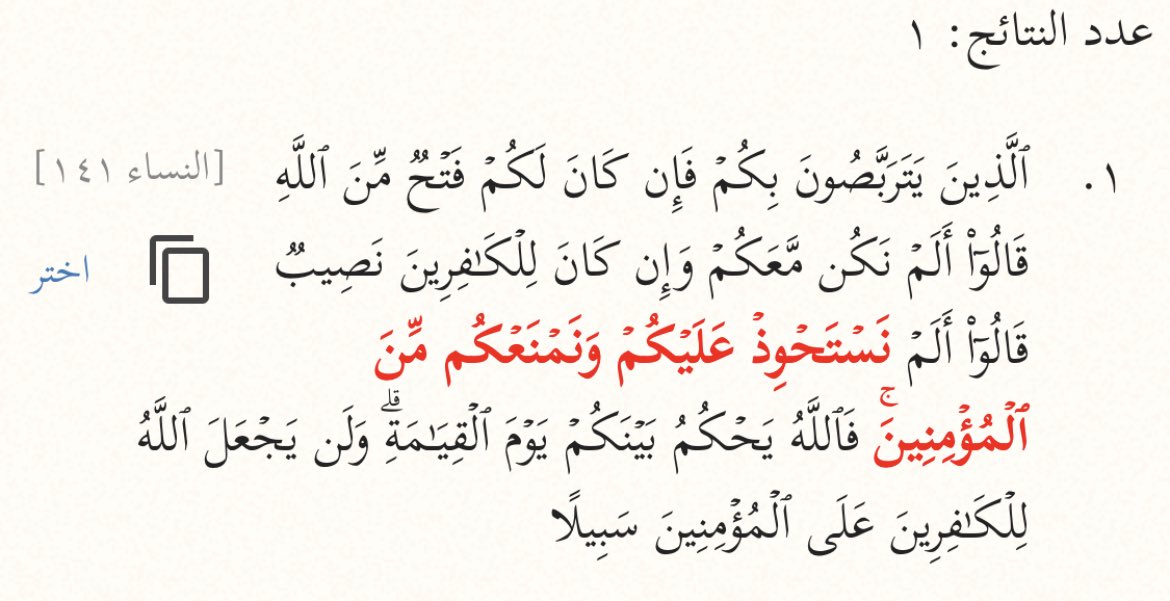 عدد النتائج: ١
١. ٱلَّذِينَ يَتَرَبَّصُونَ بِكُمۡ فَإِن كَانَ لَكُمۡ فَتۡحٞ مِّنَ ٱللَّهِ [النساء ١٤١]
قَالُوٓاْ أَلَمۡ نَكُن مَّعَكُمۡ وَإِن كَانَ لِلۡكَٰفِرِينَ نَصِيبٞ
اختر
قَالُوٓاْ أَلَمۡ نَسۡتَحۡوِذۡ عَلَيۡكُمۡ وَنَمۡنَعۡكُم مِّنَ
ٱلۡمُؤۡمِنِينَۚ فَٱللَّهُ يَحۡكُمُ بَيۡنَكُمۡ يَوۡمَ ٱلۡقِيَٰمَةِۗ وَلَن يَجۡعَلَ ٱللَّهُ
لِلۡكَٰفِرِينَ عَلَى ٱلۡمُؤۡمِنِينَ سَبِيلًا